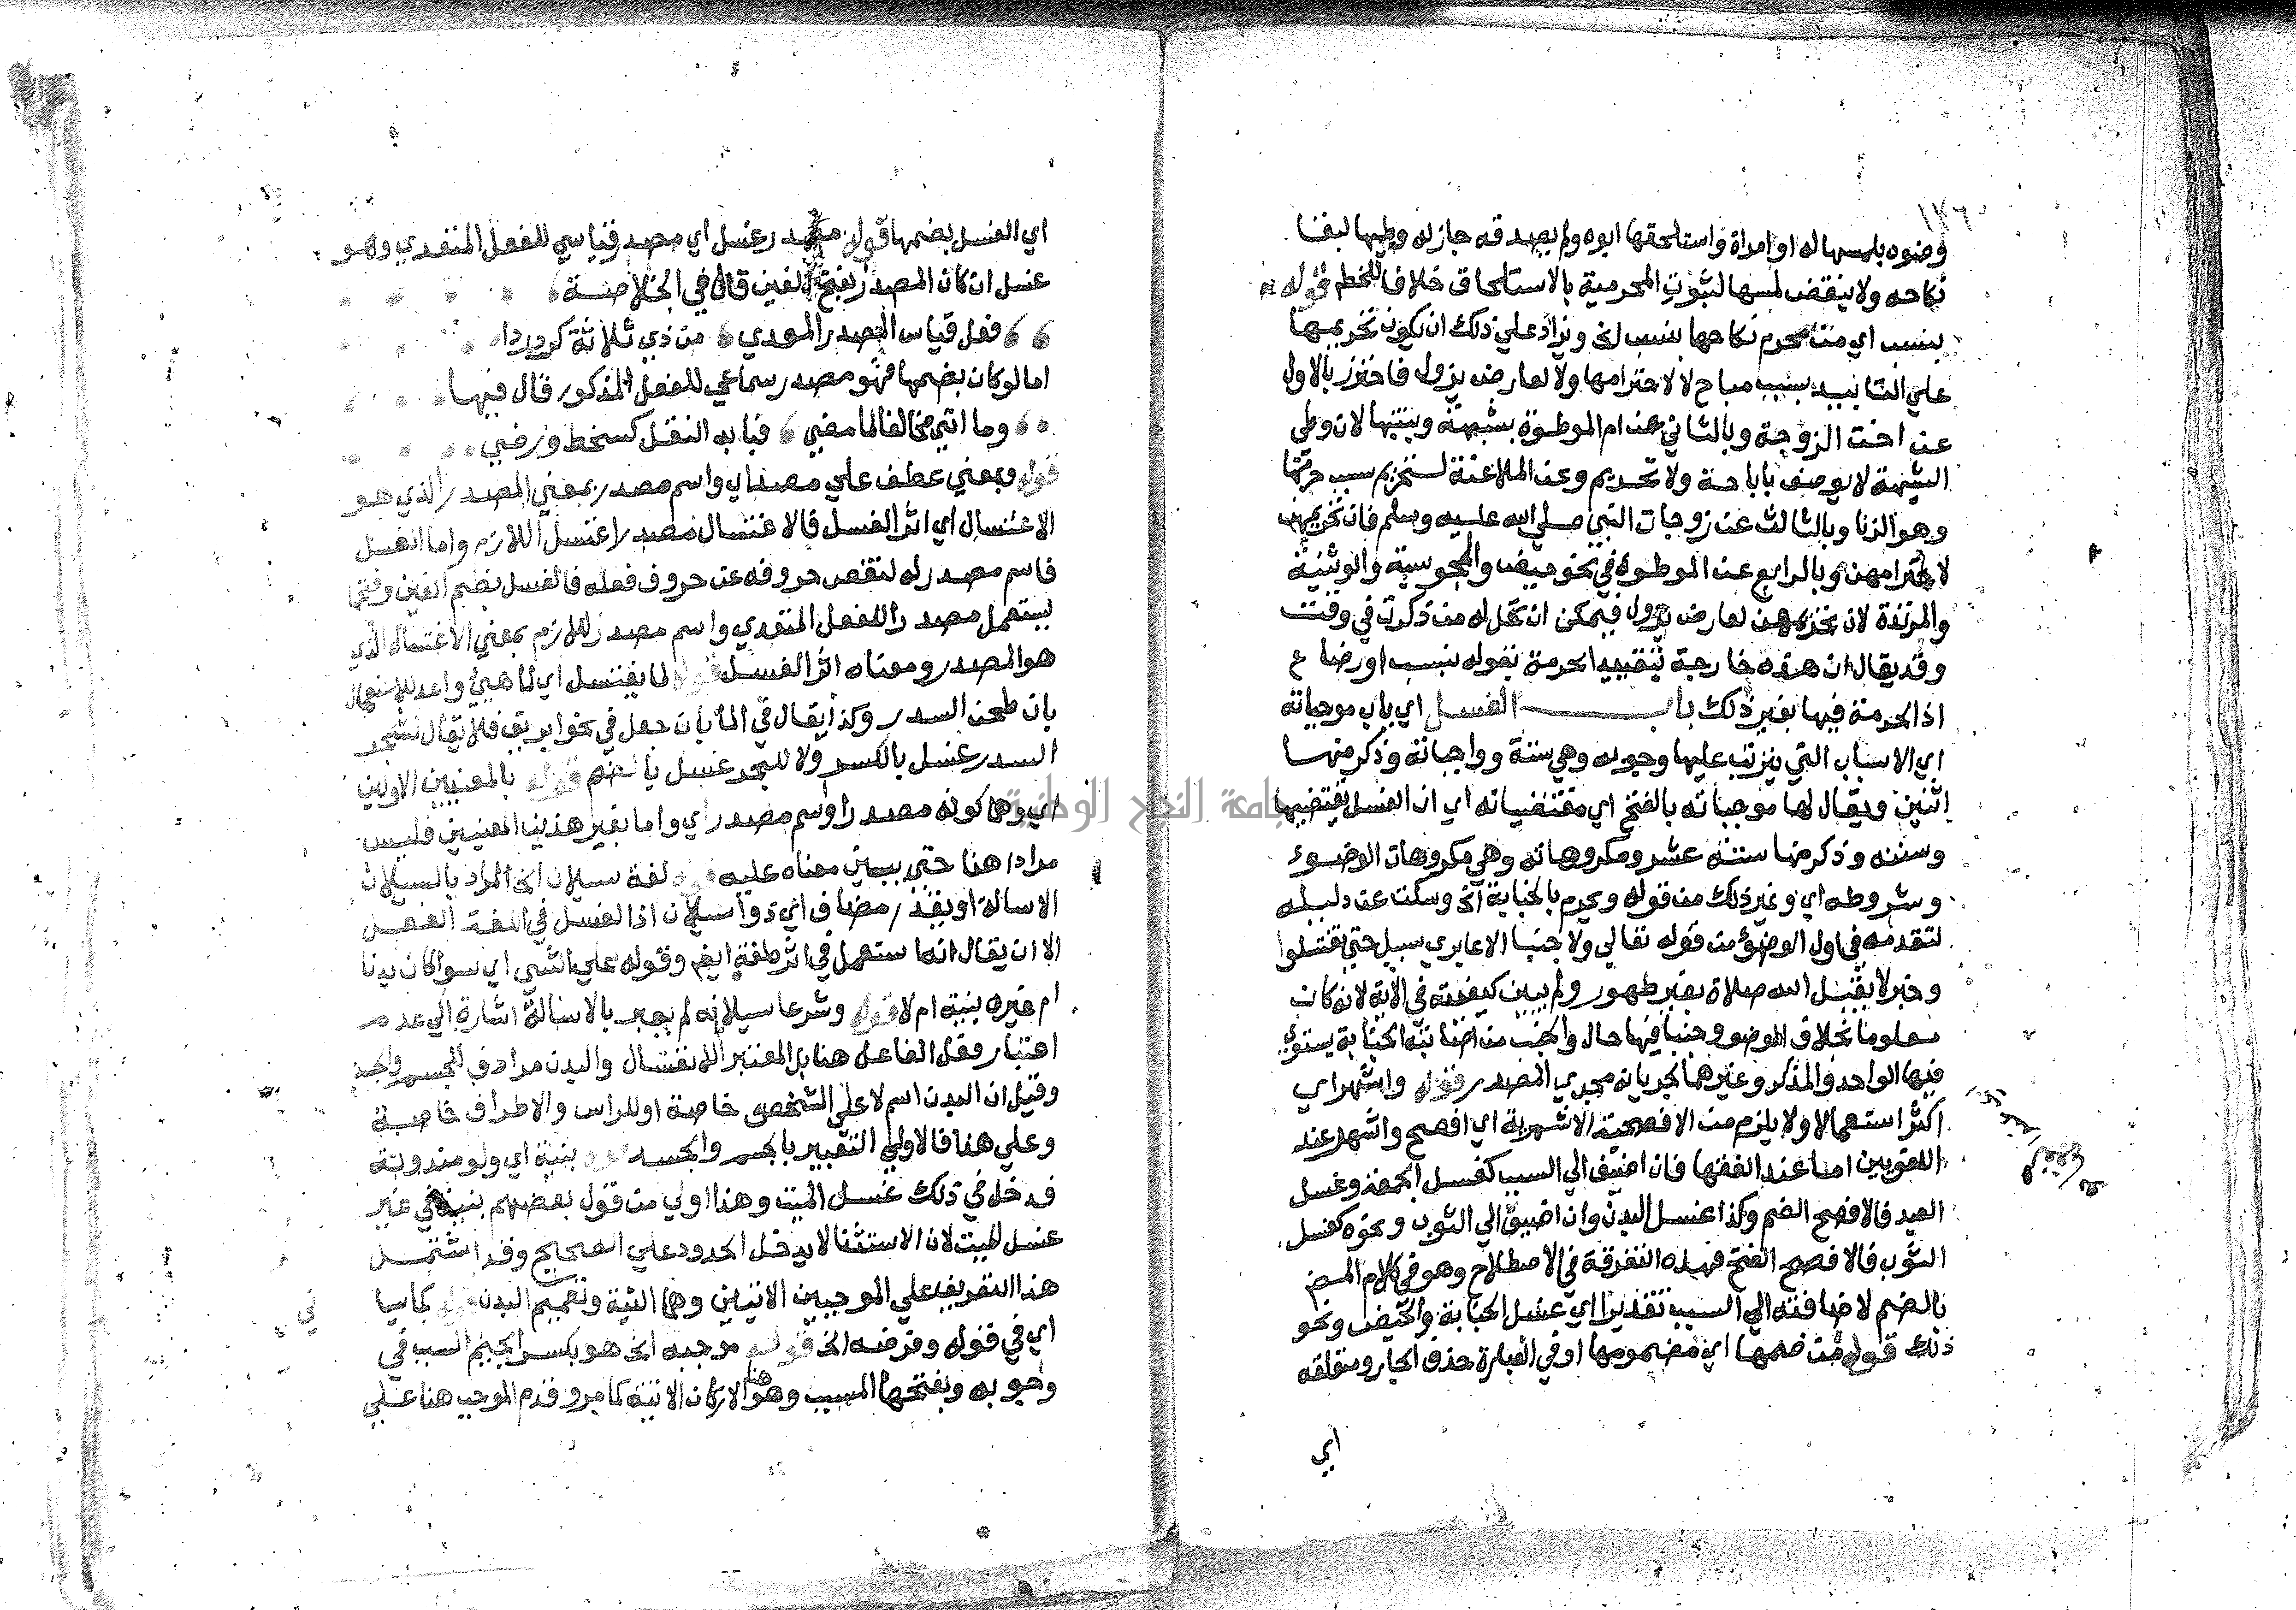 ١٢٦
وضوه بلمسها له او امراة واستلحقها ابوه ولم يصدقه جاز له وطيها لبقا
نكاحه ولا ينقض لمسها لثبوت المحرمية بالاستلحاق خلافا للخطم قوله
بنسب اي من محرم نكاحها بنسب الخ ويزاد علي ذلك ان يكون تحريمها
علي التابيد بسبب مباح لا لاحترامها ولا لعارض يزول فاحترز بالاول
عن اخت الزوجة وبالثاني عن ام الموطوة بشبهة وبنتها لان وطي
الشبهة لا يوصف باباحة ولا تحريم وعن الملاعنة لتحريم سبب حرمتها
وهو الزنا وبالثالث عن زوجات النبي صلي الله عليه وسلم فان تحريمهن
لاحترامهن وبالرابع عن الموطوة في نحو حيض والمجوسية والوثنية
والمرتدة لان تحريمهن لعارض يزول فيمكن ان تحل له من ذكرت في وقت
وقد يقال ان هذه خارجة بتقييد الحرمة بقوله بنسب او رضاع
اذ الحرمة فيها بغير ذلك باب الغسل اي باب موجباته
اي الاسباب التي يترتب عليها وجوبه وهي ستة وواجباته وذكر منها
اثنين ويقال لها موجباته بالفتح اي مقتضياته اي ان الغسل يقتضيها
وسننه وذكر منها ستة عشر ومكروهاته وهي مكروهات الوضوء
وشروطه اي وغير ذلك من قوله ويحرم بالجنابة الخ وسكت عن دليله
لتقدمه في اول الوضؤ من قوله تعالي ولا جنبا الا عابري سبيل حتي تغتسلوا
وخبر لا يقبل الله صلاة بغير طهور ولم يبين كيفيته في الاية لانه كان
معلوما بخلاف الوضو وجنبا فيها حال والجنب من اصابته الجنابة يستوي
فيها الواحد والمذكر وغيرهما لجريانه مجري المصدر قوله واشهر اي
اكثر استعمالا ولا يلزم من الافصحية الاشهرية اي افصح واشهر عند
اللغويين اما عند الفقها فان اضيف الي السبب كغسل الجمعة وغسل
العيد فالافصح الضم وكذا غسل البدن وان اضيف الي الثوب ونحوه كغسل
الثوب فالافصح الفتح فهذه التفرقة في الاصطلاح وهو في كلام المص
بالضم لاضافته الي السبب تقديرا اي غسل الجنابة والحيض ونحو
ذلك قوله من ضمها اي مضمومها او في العبارة حذف الجار ومتعلقه
اي
اي الغسل بضمها قوله مصدر غسل اي مصدر قياسي للفعل المتعدي وهو
غسل ان كان المصدر بفتح الغين قال في الخلاصة
فعل قياس المصدر المعدي من ذي ثلاثة كرد ردا
اما لو كان بضمها فهو مصدر سماعي للفعل المذكور قال فيها
وما اتي مخالفا لما مضي فبابه النقل كسخط ورضي
قوله وبمعني عطف علي مصدر اي واسم مصدر بمعني المصدر الذي هو
الاغتسال اي اثر الغسل فالاغتسال مصدر اغتسل اللازم واما الغسل
فاسم مصدر له لنقص حروفه عن حروف فعله فالغسل بضم الغين وفتحها
يستعمل مصدرا للفعل المتعدي واسم مصدر لللازم بمعني الاغتسال الذي
هو المصدر ومعناه اثر الغسل قوله لما يغتسل اي لما هيئ واعد للاستعمال
بان طحن السدر وكذا يقال في الما بان جعل في نحو ابريق فلا يقال لشجر
السدر غسل بالكسر ولا للبحر غسل بالضم قوله بالمعنيين الاولين
اي وهما كونه مصدرا واسم مصدر اي واما بغير هذين المعنيين فليس
مرادا هنا حتي يبين معناه عليه قوله لغة سيلان الخ المراد بالسيلان
الاسالة او يقدر مضاف اي ذو اسيلان اذ الغسل في اللغة الفعل
الا ان يقال انه استعمل في اثر لغة ايضم وقوله علي الشي اي سوا كان بدنا
ام غيره بنية ام لا قوله وشرعا سيلانه لم يعبر بالاسالة اشارة الي عدم
اعتبار فعل الفاعل هنا بل المعتبر الانغسال والبدن مرادف للجسم والجسد
وقيل ان البدن اسم لاعلي الشخص خاصة او للراس والاطراف خاصة
وعلي هذا فالاولي التعبير بالجسم والجسد قوله بنية اي ولو مندوبة
فدخل في ذلك غسل الميت وهذا اولي من قول بعضهم بنية في غير
غسل الميت لان الاستثنا لا يدخل الحدود علي الصحيح وقد اشتمل
هذا التعريف علي الموجبين الاتيين وهما النية وتعميم البدن قوله كما سيا
في
اي في قوله وفرضه الخ قوله موجبه الخ هو بكسر الجيم السبب في
وجوبه وبفتحها المسبب وهو هنا الاركان الاتية كما مر وقدم الموجب هنا علي
جامعة النجاح الوطنية